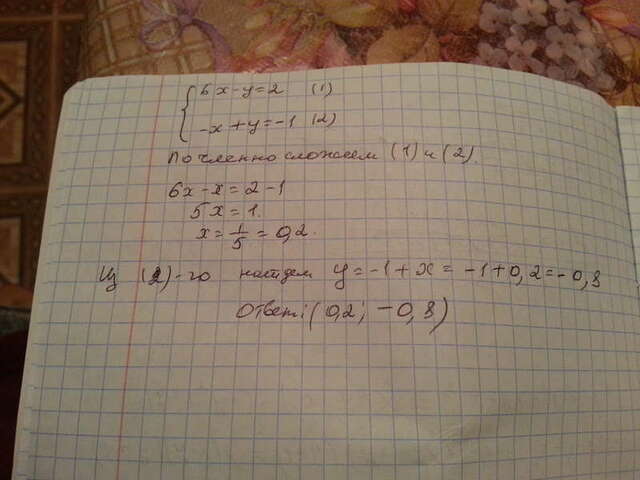 6x-y=2 (1)
-x+y=-1 (2)
Почленно сложем (1) и (2).
6x-x=2-1
5x=1.
x=1/5=0,2.
Из (2)-го найдем y=-1+x=-1+0,2=-0,8
Ответ: (0,2; -0,8)